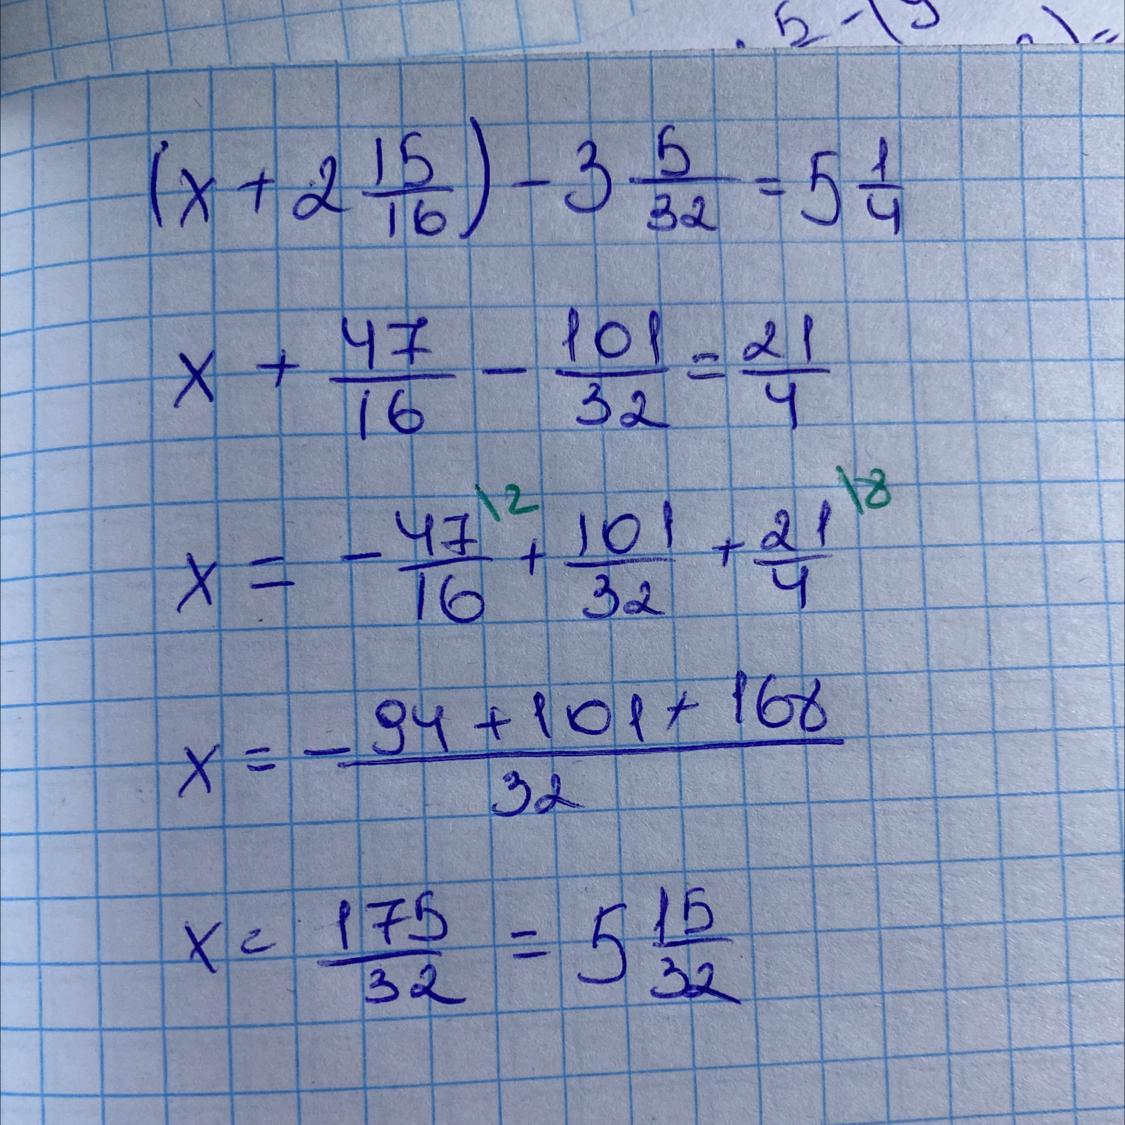 5 - (9
) =
(x + 2 15/16) - 3 5/32 = 5 1/4
x + 47/16 - 101/32 = 21/4
x = - 47/16 \2 + 101/32 + 21/4 \8
x = - 94 + 101 + 168 / 32
x = 175/32 = 5 15/32